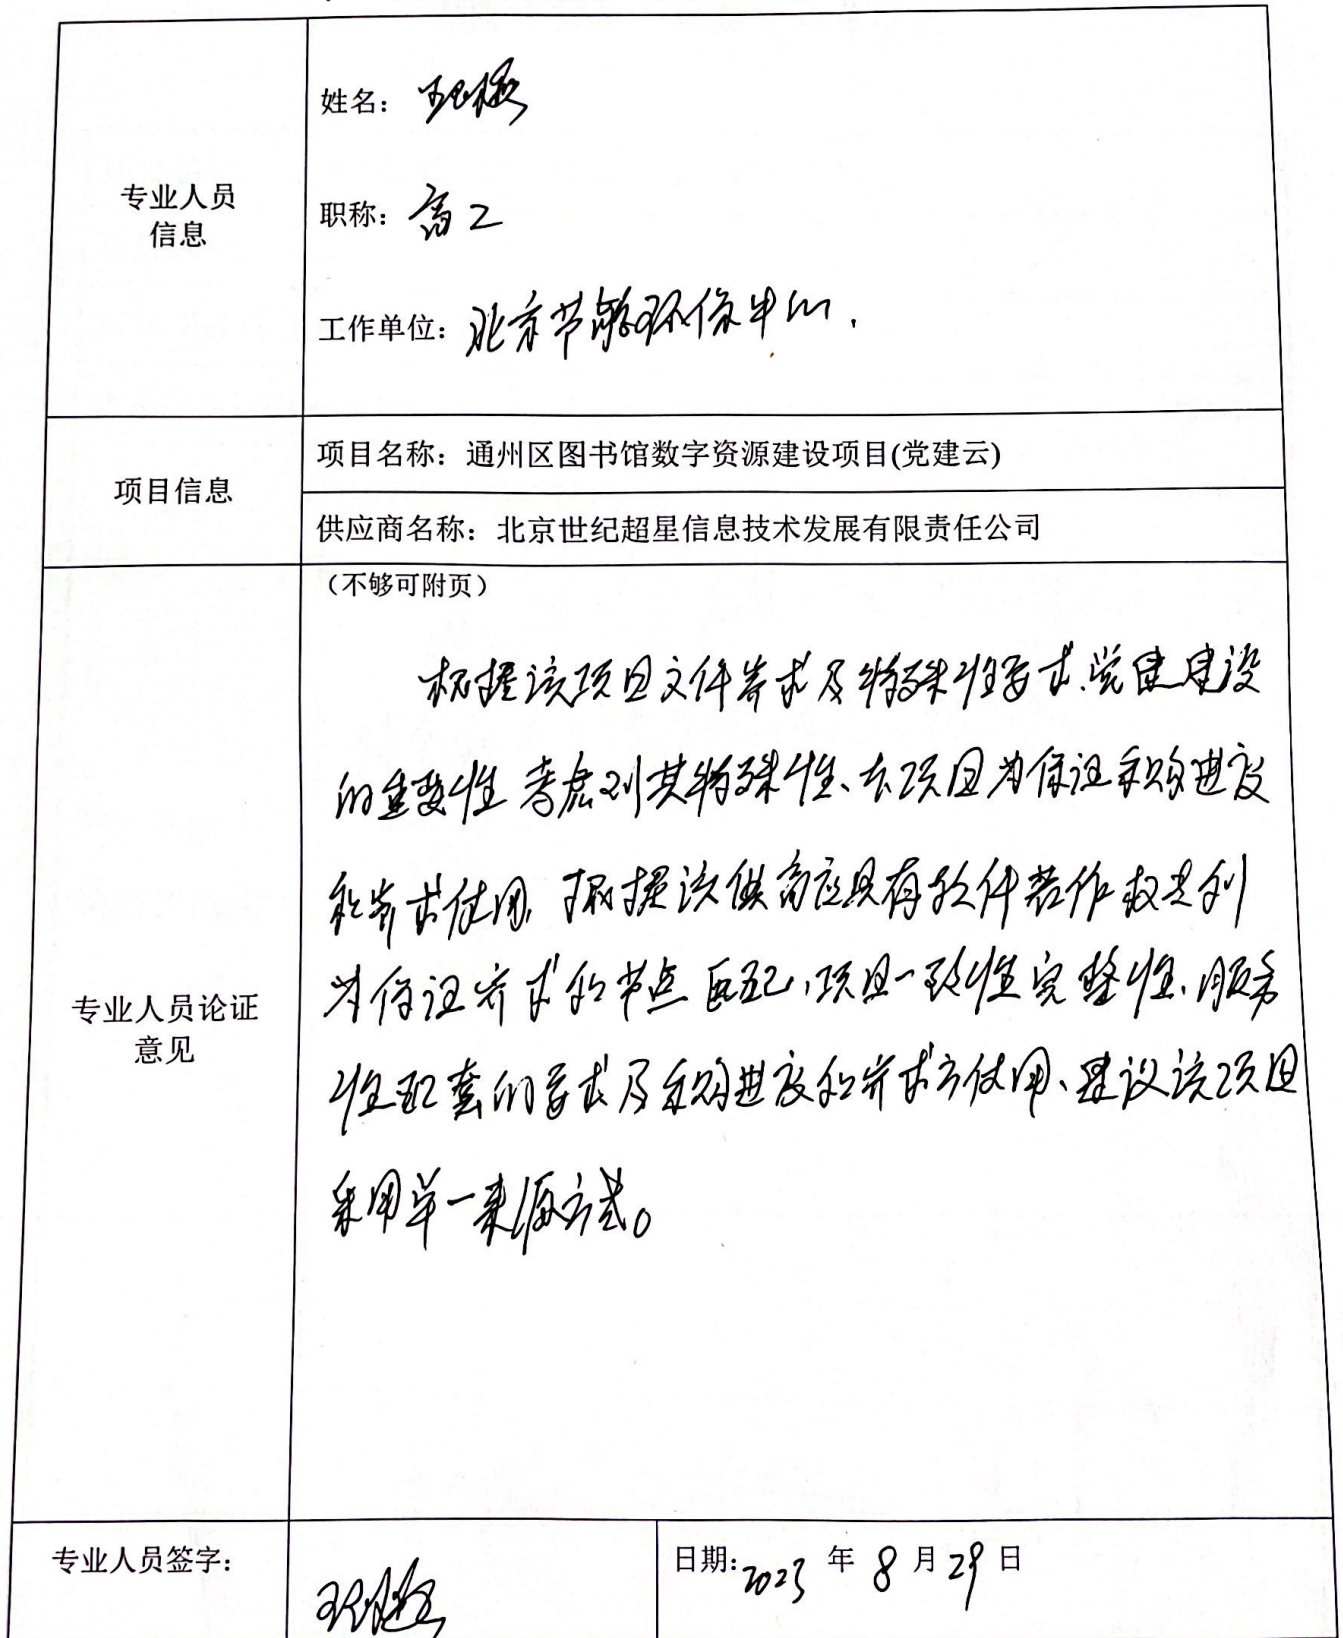 专业人员
信息
姓名：
职称：高工
工作单位：北京节能环保中心.
项目信息
项目名称：通州区图书馆数字资源建设项目(党建云)
供应商名称：北京世纪超星信息技术发展有限责任公司
专业人员论证
意见
（不够可附页）
根据该项目文件需求及特殊性要求.党建建设
的重要性考虑到其特殊性、本项目为保证采购进度
和需求使用,根据该供商应具有软件著作权专利
为保证需求和节点匹配,项目一致性完整性、服务
性配套的要求及采购进度和需求方使用、建议该项目
采用单一来源方式。
专业人员签字：
日期:2023 年 8 月 29 日